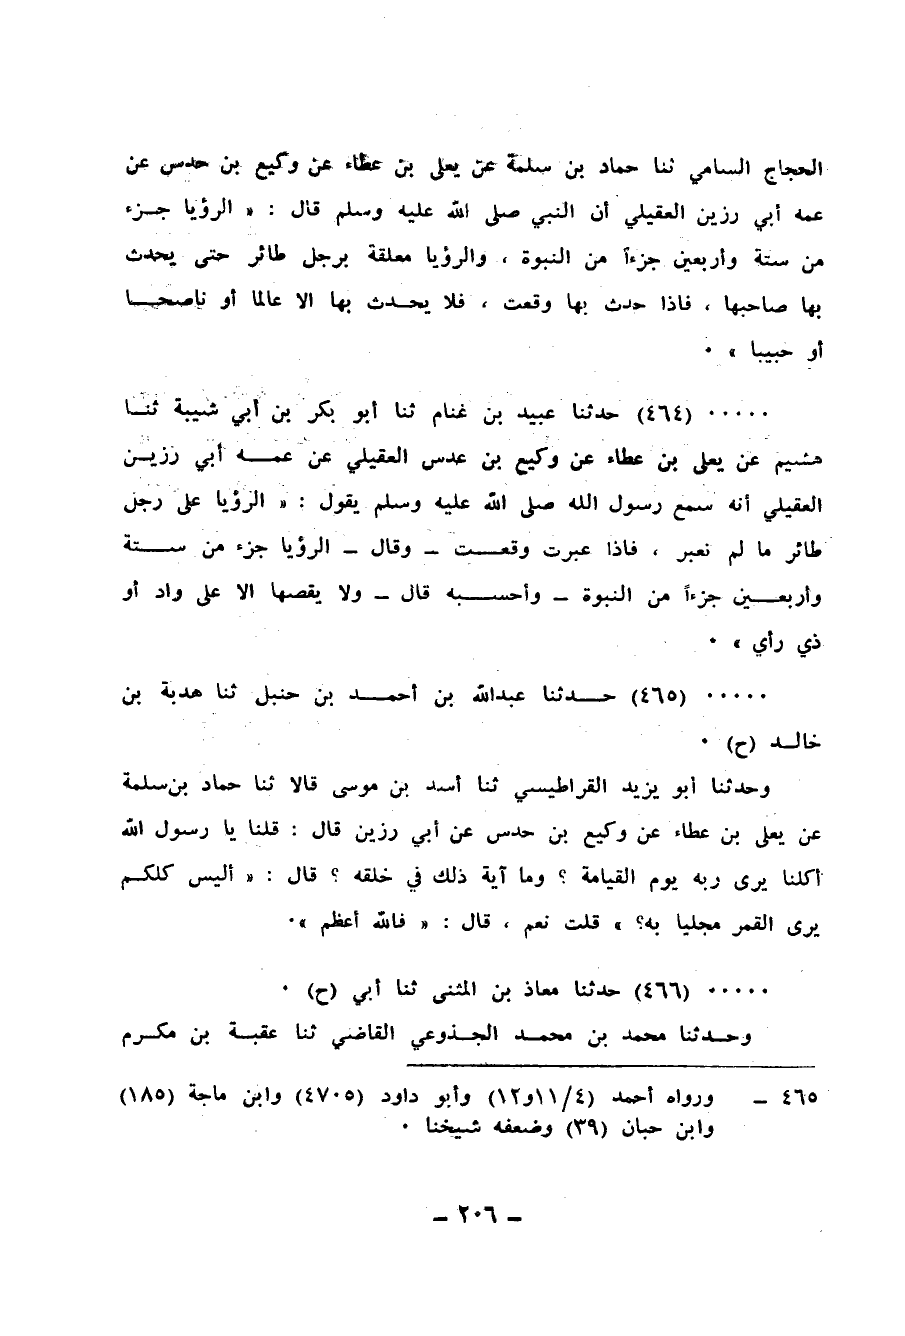 الحجاج السامي ثنا حماد بن سلمة عن يعلى بن عطاء عن وكيع بن حدس عن
عمه أبي رزين العقيلي أن النبي صلى الله عليه وسلم قال : « الرؤيا جزء
من ستة وأربعين جزءاً من النبوة ، والرؤيا معلقة برجل طائر حتى يحدث
بها صاحبها ، فاذا حدث بها وقعت ، فلا يحدث بها الا عالما أو ناصحا
أو حبيبا » ٠
٠٠٠٠٠ (٤٦٤) حدثنا عبيد بن غنام ثنا أبو بكر بن أبي شيبة ثنا
هشيم عن يعلى بن عطاء عن وكيع بن عدس العقيلي عن عمه أبي رزين
العقيلي أنه سمع رسول الله صلى الله عليه وسلم يقول : « الرؤيا على رجل
طائر ما لم تعبر ، فاذا عبرت وقعت ـ وقال ـ الرؤيا جزء من ستة
وأربعين جزءاً من النبوة ـ وأحسبه قال ـ ولا يقصها الا على واد أو
ذي رأي » ٠
٠٠٠٠٠ (٤٦٥) حدثنا عبدالله بن أحمد بن حنبل ثنا هدبة بن
خالد (ح) ٠
وحدثنا أبو يزيد القراطيسي ثنا أسد بن موسى قالا ثنا حماد بن سلمة
عن يعلى بن عطاء عن وكيع بن حدس عن أبي رزين قال : قلنا يا رسول الله
أكلنا يرى ربه يوم القيامة ؟ وما آية ذلك في خلقه ؟ قال : « أليس كلكم
يرى القمر مجليا به؟ » قلت نعم ، قال : « فالله أعظم »٠
٠٠٠٠٠ (٤٦٦) حدثنا معاذ بن المثنى ثنا أبي (ح) ٠
وحدثنا محمد بن محمد الجذوعي القاضي ثنا عقبة بن مكرم
٤٦٥ ـ ورواه أحمد (٤/١١و١٢) وأبو داود (٤٧٠٥) وابن ماجة (١٨٥)
وابن حبان (٣٩) وضعفه شيخنا ٠
ـ ٢٠٦ ـ